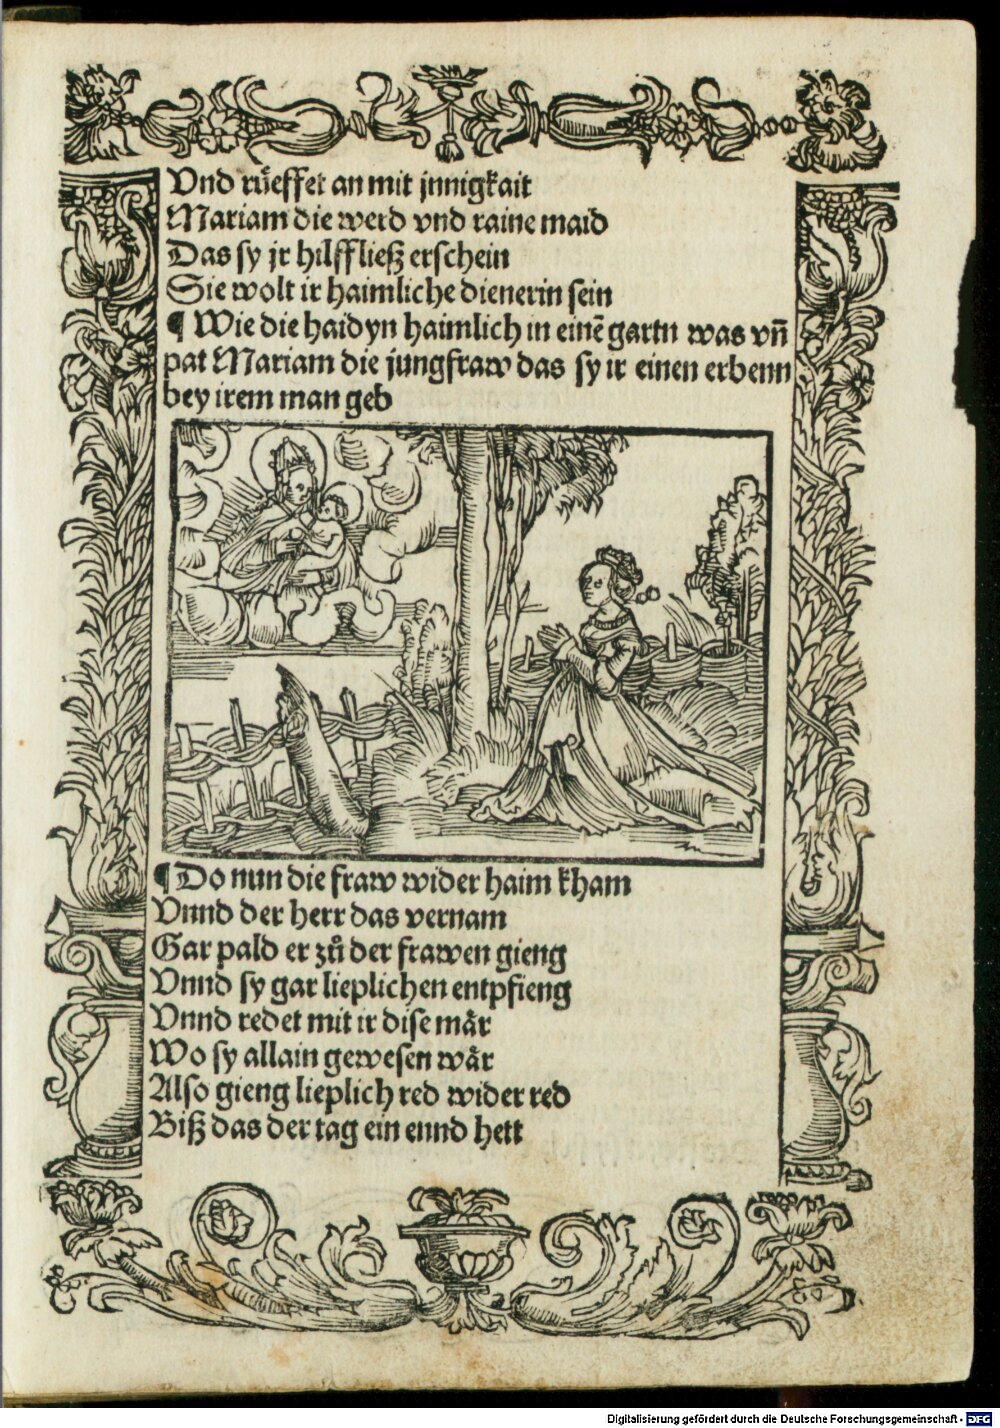 Vnd rüeffet an mit jnnigkait
Mariam die werd vnd raine maid
Das sy jr hilffließ erschein
Sie wolt ir haimliche dienerin sein
¶ Wie die haidyn haimlich in einē gartn was vn̄
pat Mariam die jungfraw das sy ir einen erbenn
bey irem man geb
¶ Do nun die fraw wider haim kham
Vnnd der herr das vernam
Gar pald er zů der frawen gieng
Vnnd sy gar lieplichen entpfieng
Vnnd redet mit ir dise mår
Wo sy allain gewesen wår
Also gieng lieplich red wider red
Biß das der tag ein ennd hett
Digitalisierung gefördert durch die Deutsche Forschungsgemeinschaft - DFG